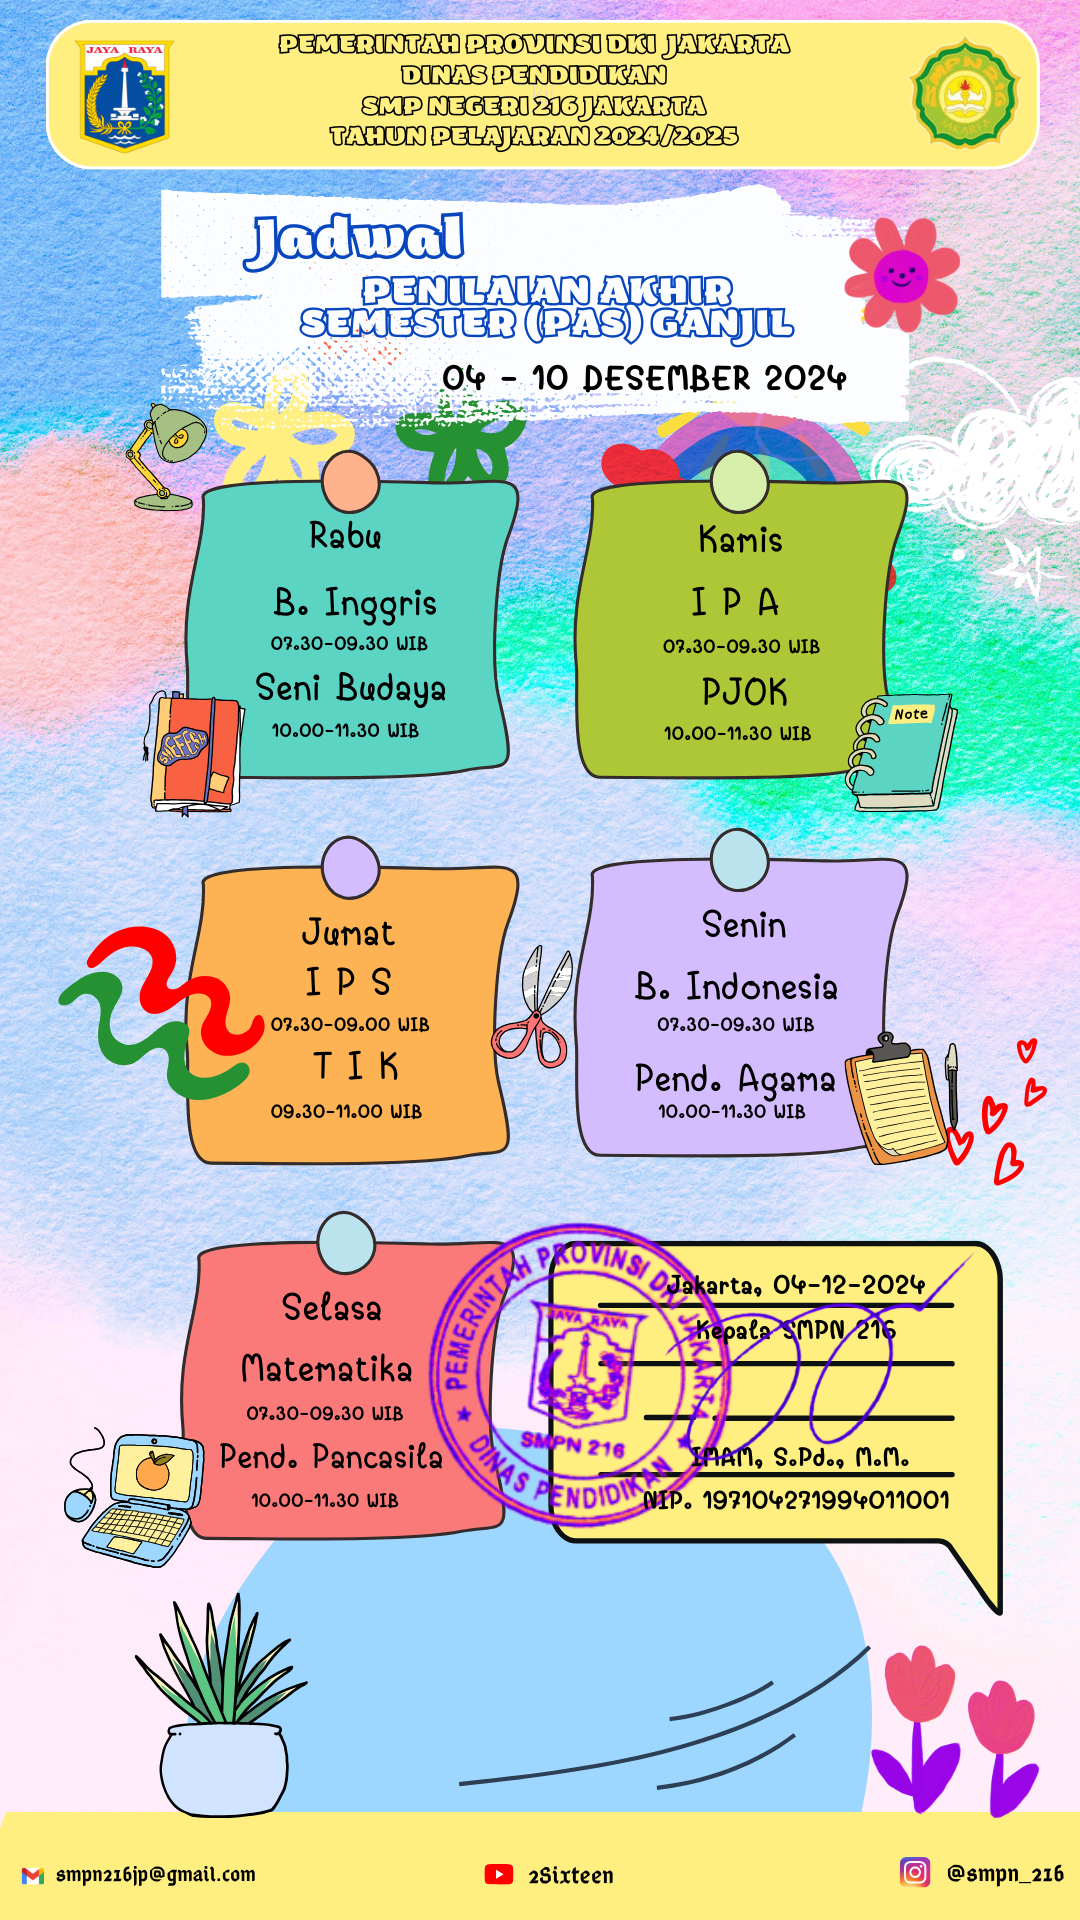 JAYA RAYA
PEMERINTAH PROVINSI DKI JAKARTA
DINAS PENDIDIKAN
SMP NEGERI 216 JAKARTA
TAHUN PELAJARAN 2024/2025
SMPN 216
JAKARTA
Jadwal
PENILAIAN AKHIR
SEMESTER (PAS) GANJIL
04 - 10 DESEMBER 2024
Rabu
B. Inggris
07.30-09.30 WIB
Seni Budaya
10.00-11.30 WIB
Kamis
I P A
07.30-09.30 WIB
PJOK
10.00-11.30 WIB
Note
Jumat
I P S
07.30-09.00 WIB
T I K
09.30-11.00 WIB
Senin
B. Indonesia
07.30-09.30 WIB
Pend. Agama
10.00-11.30 WIB
Selasa
Matematika
07.30-09.30 WIB
Pend. Pancasila
10.00-11.30 WIB
PEMERINTAH PROVINSI DKI JAKARTA
JAYA RAYA
SMPN 216
DINAS PENDIDIKAN
Jakarta, 04-12-2024
Kepala SMPN 216
IMAM, S.Pd., M.M.
NIP. 197104271994011001
smpn216jp@gmail.com
2Sixteen
@smpn_216